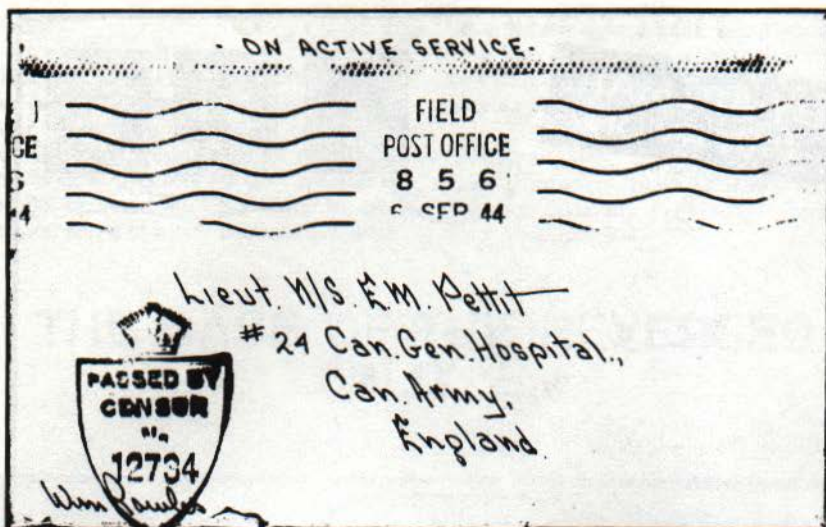 · ON ACTIVE SERVICE·
FIELD
POST OFFICE
8 5 6
SEP 44
Lieut. N/S. E.M. Pettit
# 24 Can. Gen. Hospital.,
Can. Army,
England.
PASSED BY
CENSOR
No
12734
Wm